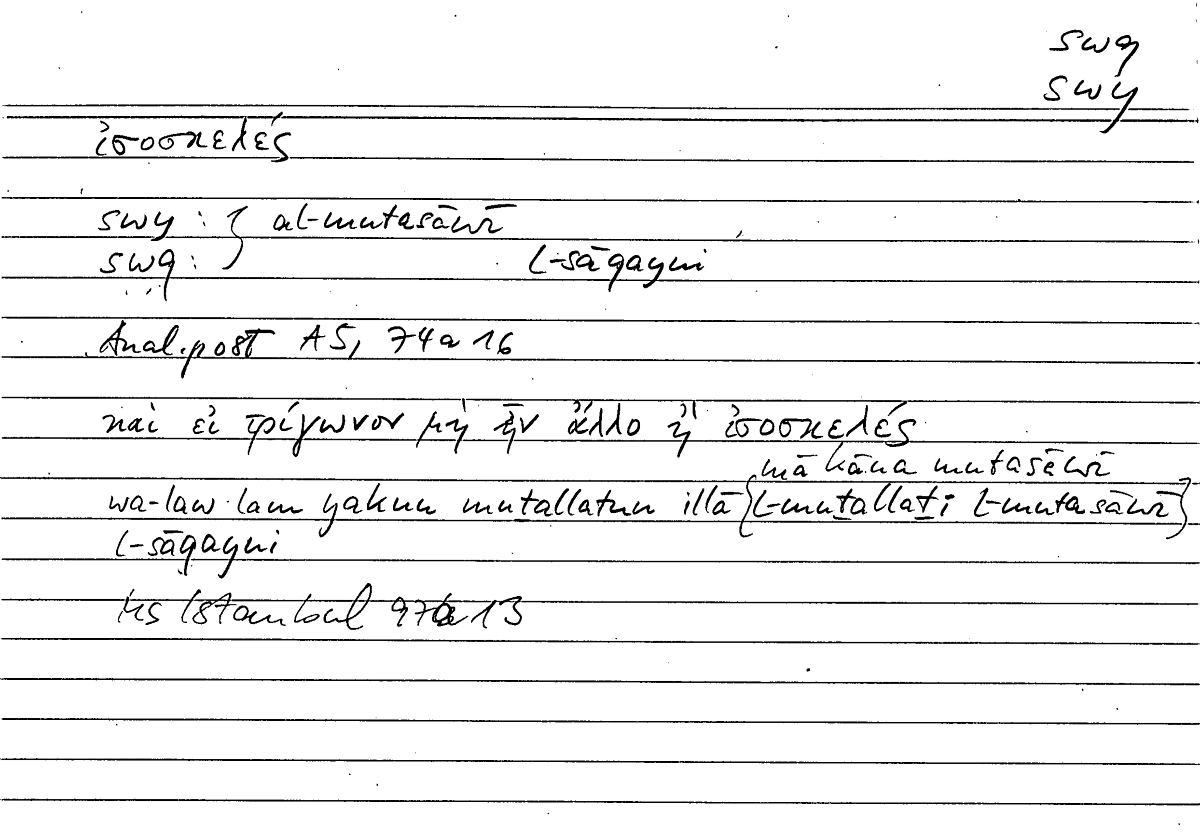 swq
swy
ἰσοσκελές
swy : } al-mutasāwī
swq : l-sāqayni
Anal. post A5, 74a16
καὶ εἰ τρίγωνον μὴ ἦν ἄλλο ἢ ἰσοσκελές
mā kāna mutasāwī
wa-law lam yakun muṯallaṯun illā {l-muṯallaṯi l-mutasāwī}
l-sāqayni
MS Istanbul 13